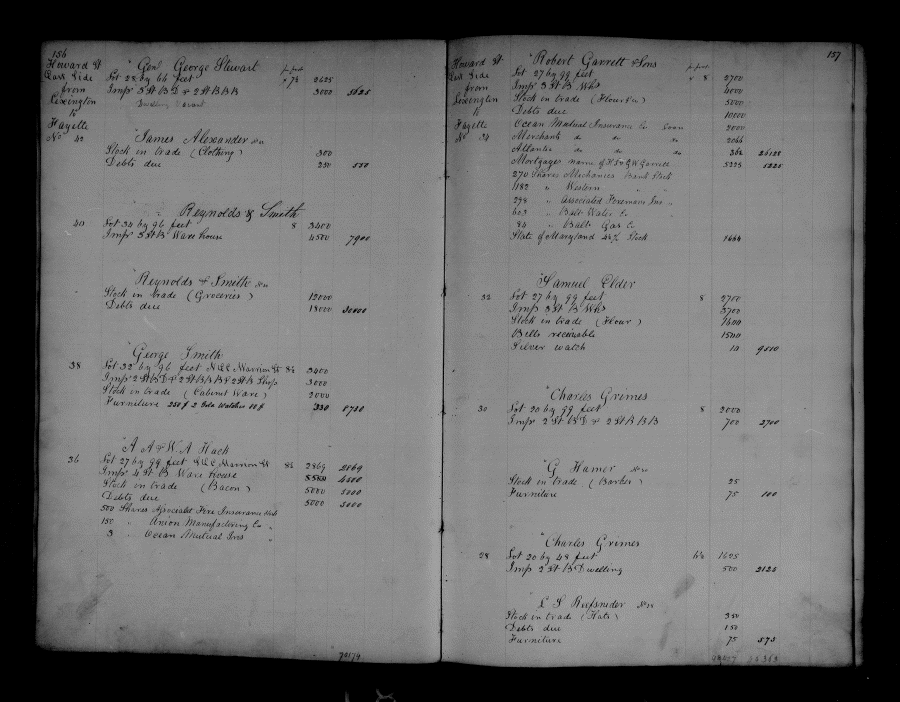 156
Howard St
East Side
from
Lexington
to
Fayette
No 42
" Genl George Stewart
Lot 28 by 66 feet
Imps 3 St B D & 2 St B B B 3000 5625
Dwelling Vacant
" James Alexander
Stock in trade (Clothing) 300
Debts due 250 550
" Reynolds & Smith
40 Lot 34 by 96 feet 8 3400
Imps 3 St B Ware house 4500 7900
" Reynolds & Smith
Stock in trade (Groceries) 12000
Debts due 18000 30000
" George Smith
38 Lot 32 by 96 feet N.E.C. Marrion St 3400
Imps 2 St B D & 2 St B B B & 2 St B Shop 3000
Stock in trade (Cabinet Ware) 2000
Furniture 250 & 2 Gold Watches 80 $ 330 8730
" A A & W A Hack
36 Lot 27 by 99 feet S.E.C. Marrion St 2869 2869
Imps 4 St B Ware house 4500
Stock in trade (Bacon) 5000 5000
Debts due 5000 5000
500 Shares Associated Fire Insurance Stock
150 " Union Manufacturing Co "
3 " Ocean Mutual Ins "
157
Howard St
East Side
from
Lexington
to
Fayette
No 34
" Robert Garrett & Sons
Lot 27 by 99 feet 8 2700
Imps 3 St B Whs 4000
Stock in trade (Flour &c) 5000
Debts due 10000
Ocean Mutual Insurance Co 2000
Merchants do do do 2066
Atlantic do do do 362 26128
Mortgages name of H S & G W Garrett 5225 5225
270 Shares Mechanics Bank Stock
1182 " Western " "
298 " Associated Firemans Ins "
603 " Balt Water Co
84 " Balt Gas Co
State of Maryland Stock 1664
" Samuel Elder
32 Lot 27 by 99 feet 8 2700
Imps 3 St B Whs 3700
Stock in trade (Flour) 1600
Bills receivable 1500
Silver watch 10 9510
" Charles Grimes
30 Lot 20 by 99 feet 8 2000
Imps 2 St B D & 2 St B B B 700 2700
" G Hamer
Stock in trade (Barber) 25
Furniture 75 100
" Charles Grimes
28 Lot 20 by 48 feet 1625
Imps 2 St B Dwelling 500 2125
" L S Reifsnider
Stock in trade (Hats) 350
Debts due 150
Furniture 75 575